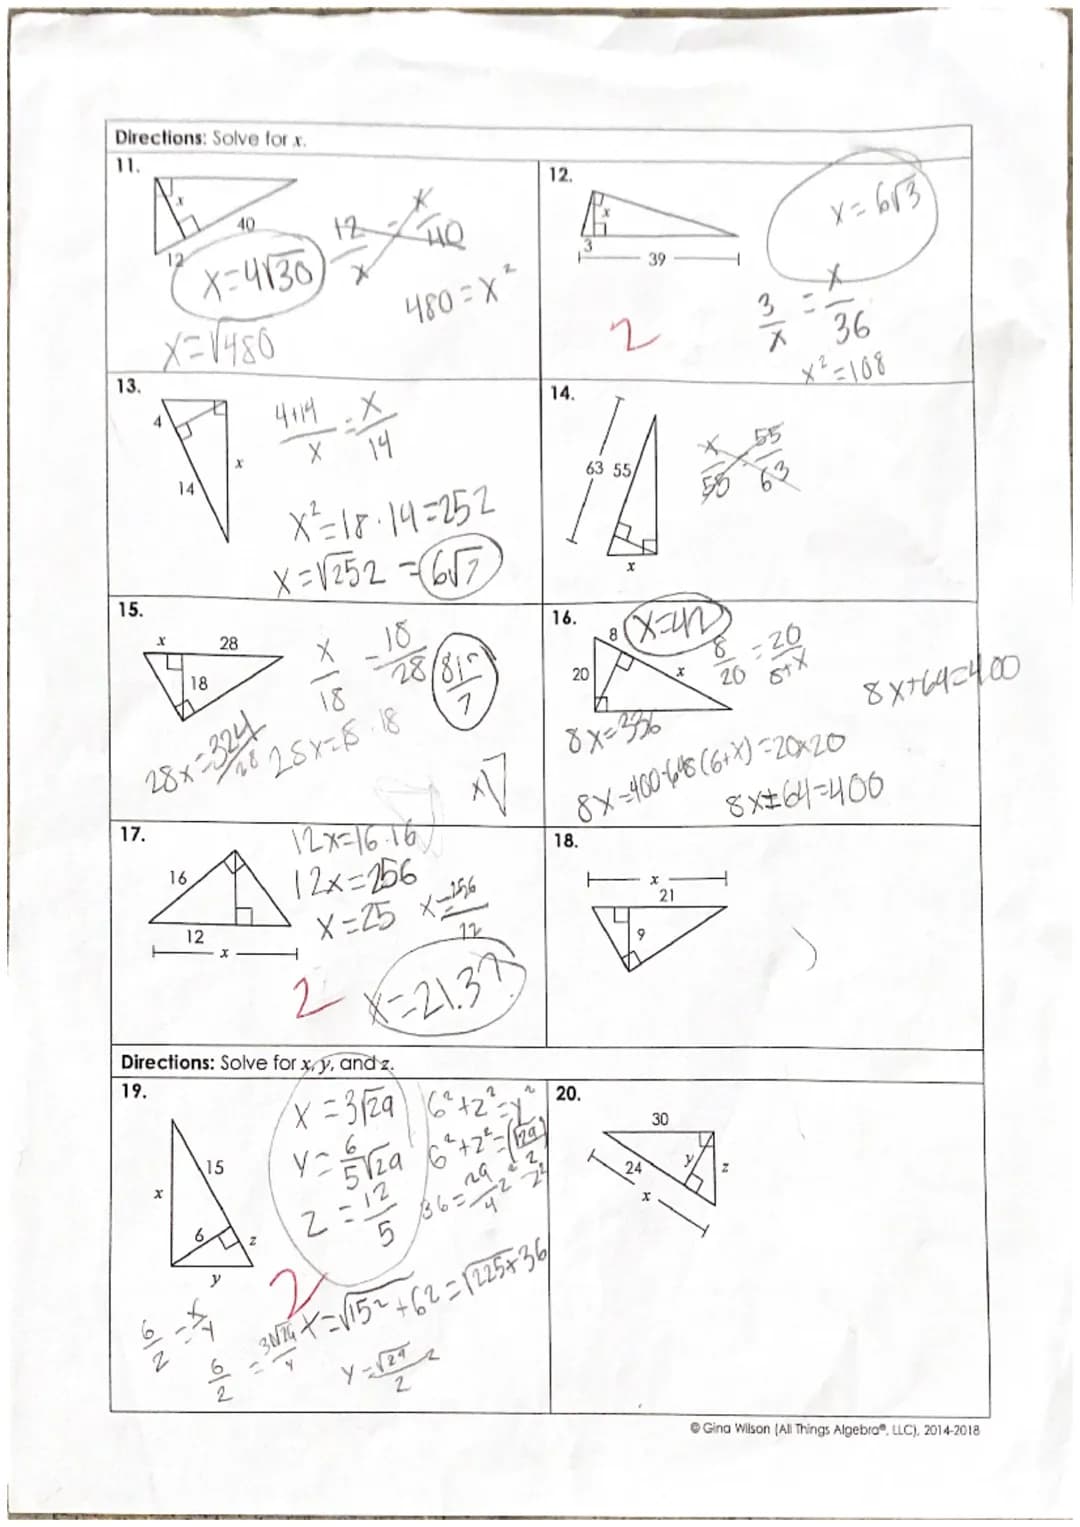 Directions: Solve for x.
11.
x
40
12
12/x = x/40
x=4√30
480=x²
x=√480
12.
x
3
39
x=6√3
3/x = x/36
x²=108
2
13.
4
14
x
4+14/x = x/14
x²=18·14=252
x=√252 =6√7
14.
63 55
x
x/55 55/63
15.
x 28
18
x/18 = 18/28
81/7
28x=324/28
28x=18·18
x
16.
8
20
x
x=42
8/20 = 20/8+x
8x+64=400
8x=336
8x=400-64
8(6+x)=20x20
8x+64=400
17.
16
12
x
12x=16·16
12x=256
x=25
x=256/12
x=21.3
2
18.
x
21
9
Directions: Solve for x, y, and z.
19.
15
x
6
z
y
x=3√29
y=6/5√29
z=12/5
6²+z²=y²
36=29/4
2
x=√15²+62=√225+36
6/z = x/y
6/2 = 3√29/y
y=√29/2
20.
30
24
y
z
x
© Gina Wilson (All Things Algebra®, LLC), 2014-2018